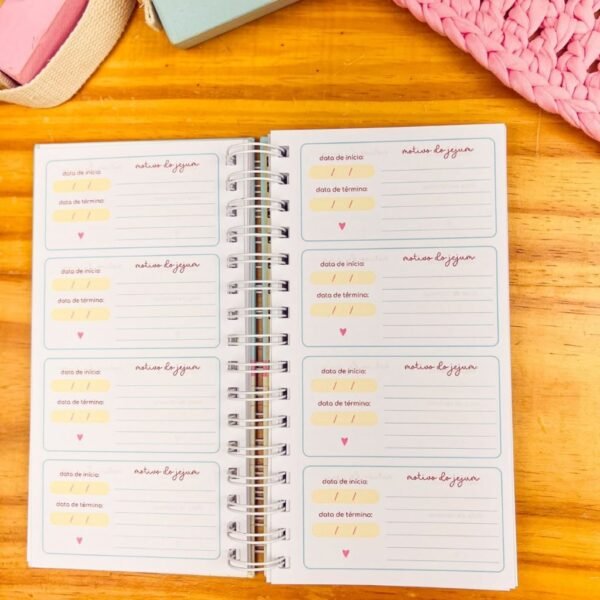 data de início:
motivo do jejum
/ /
data de término:
/ /
data de início:
motivo do jejum
/ /
data de término:
/ /
data de início:
motivo do jejum
/ /
data de término:
/ /
data de início:
motivo do jejum
/ /
data de término:
/ /
data de início:
motivo do jejum
/ /
data de término:
/ /
data de início:
motivo do jejum
/ /
data de término:
/ /
data de início:
motivo do jejum
/ /
data de término:
/ /
data de início:
motivo do jejum
/ /
data de término:
/ /